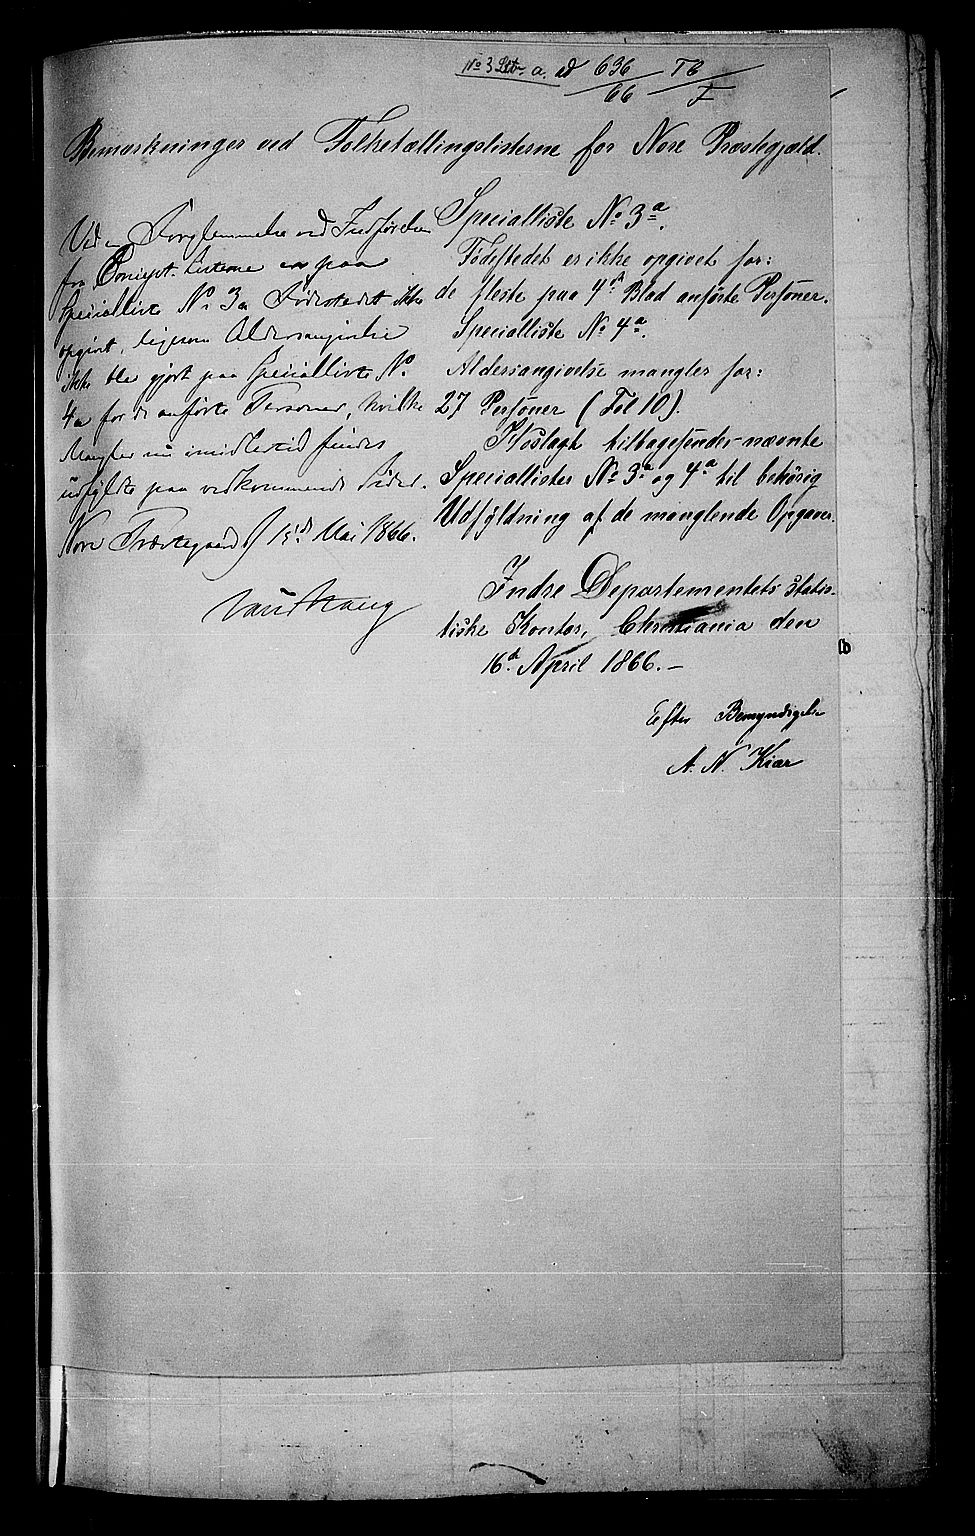 No 3 Litr. a. ad 636/66 TB/F
Bemærkninger ved Folketællingslisterne for Nore Præstegjæld.
Specialliste No 3a.
Fødestedet er ikke opgivet for:
de fleste paa 4de Blad anførte Personer.
Specialliste No 4a.
Aldersangivelse mangler for:
27 Personer (Fol 10).
Hoslagt tilbagesender nævnte
Speciallister No 3a og 4a til behørig
Udfyldning af de manglende Opgaver.
Indre Departementets statis-
tiske Kontor, Christiania den
16de April 1866. —
Efter Bemyndigelse
A. N. Kiær
Ved en Forglemmelse ved Indførelsen
fra Concept-Listerne er paa
Specialliste No 3a Fødestedet ikke
opgivet, ligesom Aldersangivelse
ikke blev gjort paa Specialliste No
4a for de anførte Personer, hvilke
Mangler nu imidlertid findes
udfyldte paa vedkommende Sider.
Nore Præstegaard 15de Mai 1866.